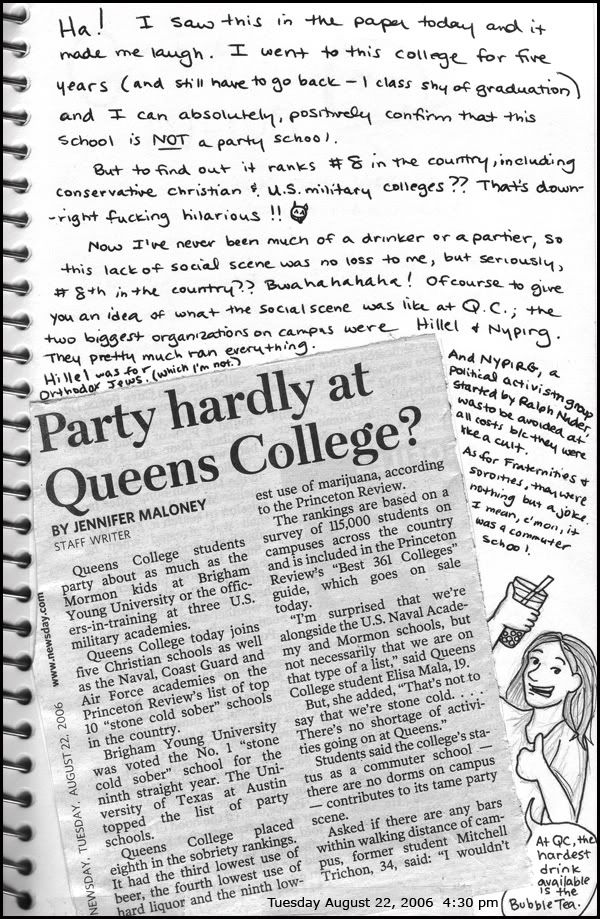 Ha! I saw this in the paper today and it
made me laugh. I went to this college for five
years (and still have to go back - 1 class shy of graduation)
and I can absolutely, positively confirm that this
school is NOT a party school.
But to find out it ranks #8 in the country, including
conservative christian & U.S. military colleges?? That's down-
-right fucking hilarious!!
Now I've never been much of a drinker or a partier, so
this lack of social scene was no loss to me, but seriously,
#8th in the country?? Bwahahahaha! Ofcourse to give
you an idea of what the social scene was like at Q.C.; the
two biggest organizations on campus were Hillel & Nypirg.
They pretty much ran everything.
Hillel was for
Orthodox Jews. (which I'm not.)
And NYPIRG, a
political activism group
started by Ralph Nader,
was to be avoided at
all costs b/c they were
like a cult.
As for Fraternities &
sororities, they were
nothing but a joke.
I mean, c'mon, it
was a commuter
school.
Party hardly at
Queens College?
BY JENNIFER MALONEY
STAFF WRITER
Queens College students
party about as much as the
Mormon kids at Brigham
Young University or the offic-
ers-in-training at three U.S.
military academies.
Queens College today joins
five Christian schools as well
as the Naval, Coast Guard and
Air Force academies on the
Princeton Review's list of top
10 "stone cold sober" schools
in the country.
Brigham Young University
was voted the No. 1 "stone
cold sober" school for the
ninth straight year. The Uni-
versity of Texas at Austin
topped the list of party
schools.
Queens College placed
eighth in the sobriety rankings.
It had the third lowest use of
beer, the fourth lowest use of
hard liquor and the ninth low-
est use of marijuana, according
to the Princeton Review.
The rankings are based on a
survey of 115,000 students on
campuses across the country
and is included in the Princeton
Review's "Best 361 Colleges"
guide, which goes on sale
today.
"I'm surprised that we're
alongside the U.S. Naval Acade-
my and Mormon schools, but
not necessarily that we are on
that type of a list," said Queens
College student Elisa Mala, 19.
But, she added, "That's not to
say that we're stone cold. . . .
There's no shortage of activi-
ties going on at Queens."
Students said the college's sta-
tus as a commuter school —
there are no dorms on campus
— contributes to its tame party
scene.
Asked if there are any bars
within walking distance of cam-
pus, former student Mitchell
Trichon, 34, said: "I wouldn't
www.newsday.com
NEWSDAY, TUESDAY, AUGUST 22, 2006
At QC, the
hardest
drink
available
is the
Bubble Tea.
Tuesday August 22, 2006 4:30 pm